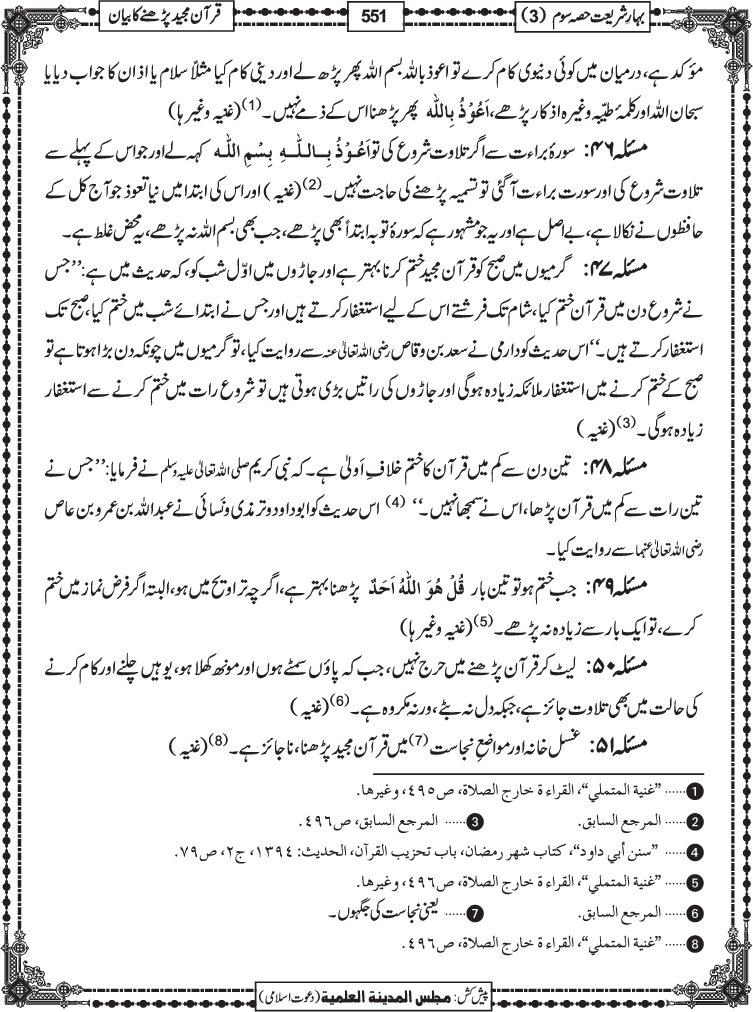 بہارِ شریعت حصہ سوم (3)
551
قرآن مجید پڑھنے کا بیان
مؤکد ہے، درمیان میں کوئی دنیوی کام کرے تو اعوذ باللہ بسم اللہ پھر پڑھ لے اور دینی کام کیا مثلاً سلام یا اذان کا جواب دیا یا
سبحان اللہ اور کلمۂ طیّبہ وغیرہ اذکار پڑھے، اَعُوْذُ بِاللّٰہ پھر پڑھنا اس کے ذمے نہیں۔ (1) (غنیہ وغیرہا)
مسئلہ ۴۶: سورۂ براءت سے اگر تلاوت شروع کی تو اَعُوْذُ بِاللّٰہِ بِسْمِ اللّٰہ کہہ لے اور جو اس کے پہلے سے
تلاوت شروع کی اور سورت براءت آگئی تو تسمیہ پڑھنے کی حاجت نہیں۔ (2) (غنیہ) اور اس کی ابتدا میں نیا تعوذ جو آج کل کے
حافظوں نے نکالا ہے، بے اصل ہے اور یہ جو مشہور ہے کہ سورۂ توبہ ابتداً بھی پڑھے، جب بھی بسم اللہ نہ پڑھے، یہ محض غلط ہے۔
مسئلہ ۴۷: گرمیوں میں صبح کو قرآن مجید ختم کرنا بہتر ہے اور جاڑوں میں اوّل شب کو، کہ حدیث میں ہے: ’’جس
نے شروع دن میں قرآن ختم کیا، شام تک فرشتے اس کے لیے استغفار کرتے ہیں اور جس نے ابتدائے شب میں ختم کیا، صبح تک
استغفار کرتے ہیں۔‘‘ اس حدیث کو دارمی نے سعد بن وقاص رضی اللہ تعالیٰ عنہ سے روایت کیا، تو گرمیوں میں چونکہ دن بڑا ہوتا ہے تو
صبح کے ختم کرنے میں استغفار ملائکہ زیادہ ہوگی اور جاڑوں کی راتیں بڑی ہوتی ہیں تو شروع رات میں ختم کرنے سے استغفار
زیادہ ہوگی۔ (3) (غنیہ)
مسئلہ ۴۸: تین دن سے کم میں قرآن کا ختم خلافِ اَولیٰ ہے۔ کہ نبی کریم صلی اللہ تعالیٰ علیہ وسلم نے فرمایا: ’’جس نے
تین رات سے کم میں قرآن پڑھا، اس نے سمجھا نہیں۔‘‘ (4) اس حدیث کو ابو داود و ترمذی و نَسائی نے عبداللہ بن عمرو بن عاص
رضی اللہ تعالیٰ عنہما سے روایت کیا۔
مسئلہ ۴۹: جب ختم ہو تو تین بار قُلْ ھُوَ اللّٰہُ اَحَدٌ پڑھنا بہتر ہے، اگرچہ تراویح میں ہو، البتہ اگر فرض نماز میں ختم
کرے، تو ایک بار سے زیادہ نہ پڑھے۔ (5) (غنیہ وغیرہا)
مسئلہ ۵۰: لیٹ کر قرآن پڑھنے میں حرج نہیں، جب کہ پاؤں سمٹے ہوں اور مونھ کھلا ہو، یوہیں چلنے اور کام کرنے
کی حالت میں بھی تلاوت جائز ہے، جبکہ دل نہ بٹے، ورنہ مکروہ ہے۔ (6) (غنیہ)
مسئلہ ۵۱: غسل خانہ اور مواضعِ نجاست (7) میں قرآن مجید پڑھنا، ناجائز ہے۔ (8) (غنیہ)
1 ...... ”غنیة المتملي“، القراءة خارج الصلاة، ص۴۹۵، وغیرها.
2 ...... المرجع السابق. 3 ...... المرجع السابق، ص۴۹۶.
4 ...... ”سنن أبي داود“، کتاب شهر رمضان، باب تحزیب القرآن، الحدیث: ۱۳۹۴، ج۲، ص۷۹.
5 ...... ”غنیة المتملي“، القراءة خارج الصلاة، ص۴۹۶، وغیرها.
6 ...... المرجع السابق. 7 ...... یعنی نجاست کی جگہوں۔
8 ...... ”غنیة المتملي“، القراءة خارج الصلاة، ص۴۹۶.
پیش کش: مجلس المدینة العلمیة (دعوتِ اسلامی)